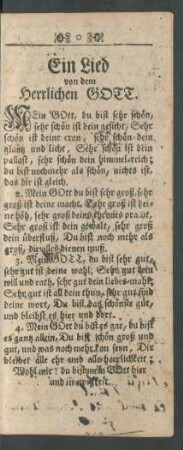 Ein Lied
von dem
Herrlichen GOTT.
MEin GOtt, du bist sehr schön,
sehr schön ist dein gesicht, Sehr
schön ist deine kron, sehr schön dein
glantz und licht, Sehr schön ist dein
pallast, sehr schön dein himmelreich;
du bist noch mehr als schön, nichts ist,
das dir ist gleich.
2. Mein GOtt du bist sehr groß, sehr
groß ist deine macht, Sehr groß ist dei-
ne höh, sehr groß deins thrones pracht,
Sehr groß ist dein gewalt, sehr groß
dein überfluß, Du bist noch mehr als
groß, dir alles dienen muß.
3. Mein GOTT, du bist sehr gut,
sehr gut ist deine wahl, Sehr gut dein
will und rath, sehr gut dein liebes-mahl,
Sehr gut ist all dein thun, sehr gut sind
deine wort, Du bist das schönste gut,
und bleibst es hier und dort.
4. Mein GOtt du bist es gar, du bist
es gantz allein, Du bist schön groß und
gut, und was noch mehr kan seyn, Dir
bleibet alle ehr und alle herrlichkeit;
Wohl mir! du bist mein GOtt hier
und in ewigkeit.